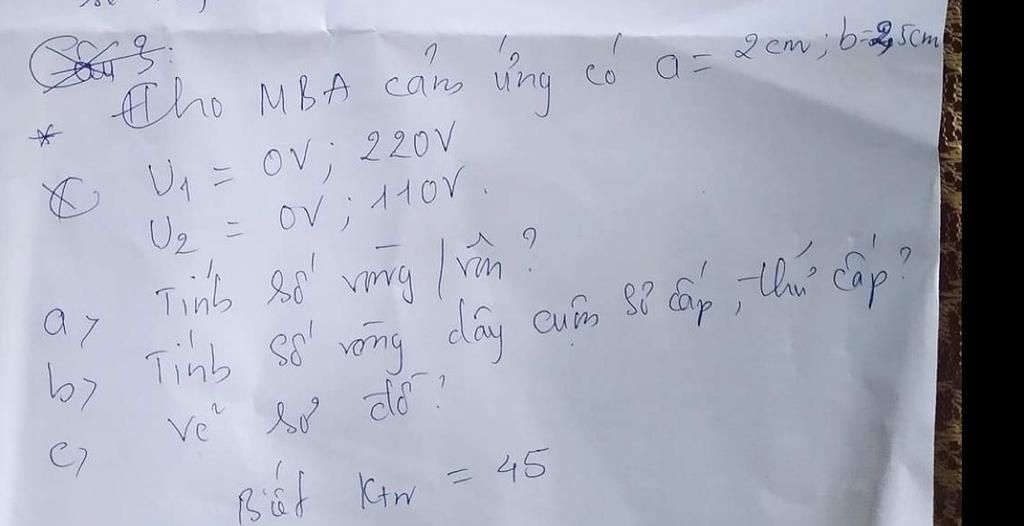 Câu 3:
* Cho MBA cảm ứng có a = 2cm; b=2,5cm
U1 = 0V; 220V
U2 = 0V; 110V.
a> Tính số vòng / vôn?
b> Tính số vòng dây cuộn sơ cấp, thứ cấp?
c> Vẽ sơ đồ?
Biết Ktn = 45